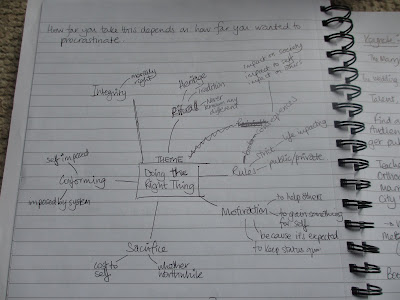 How far you take this depends on how far you wanted to
procrastinate.
Integrity
morally
right
Heritage
Tradition
Ritual
Never
known any
different
impact on society
impact to self
impact to others
Rules
strict
life impacting
public/private
THEME
Doing the
Right Thing
Conforming
self imposed
imposed by system
Motivation
to help others
to gain something
for self
because it's expected
to keep status quo
Sacrifice
cost to
self
whether
worthwhile
Talent
Find a
get pu
Teache
City